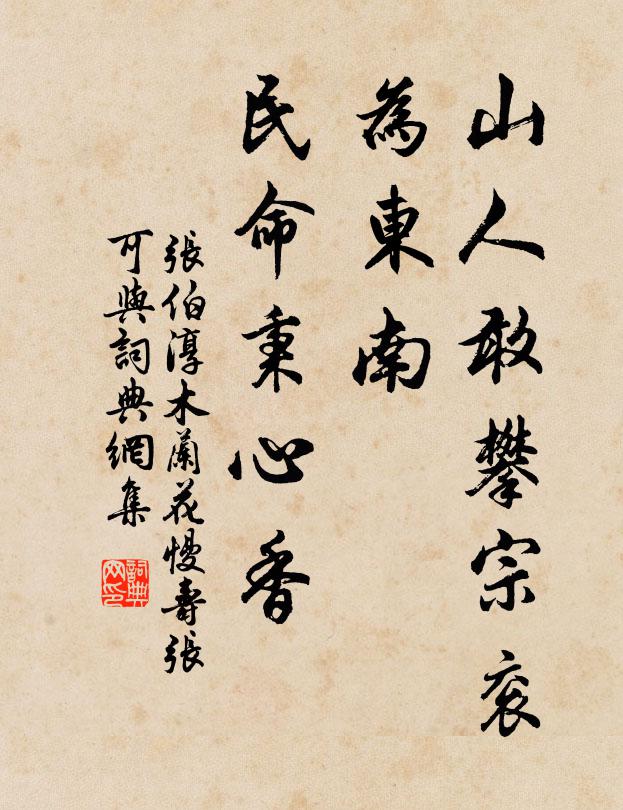 山人敢攀宗衮
為東南
民命秉心香
張伯淳木蘭花慢壽張
可與詞典網集
詞典
网印